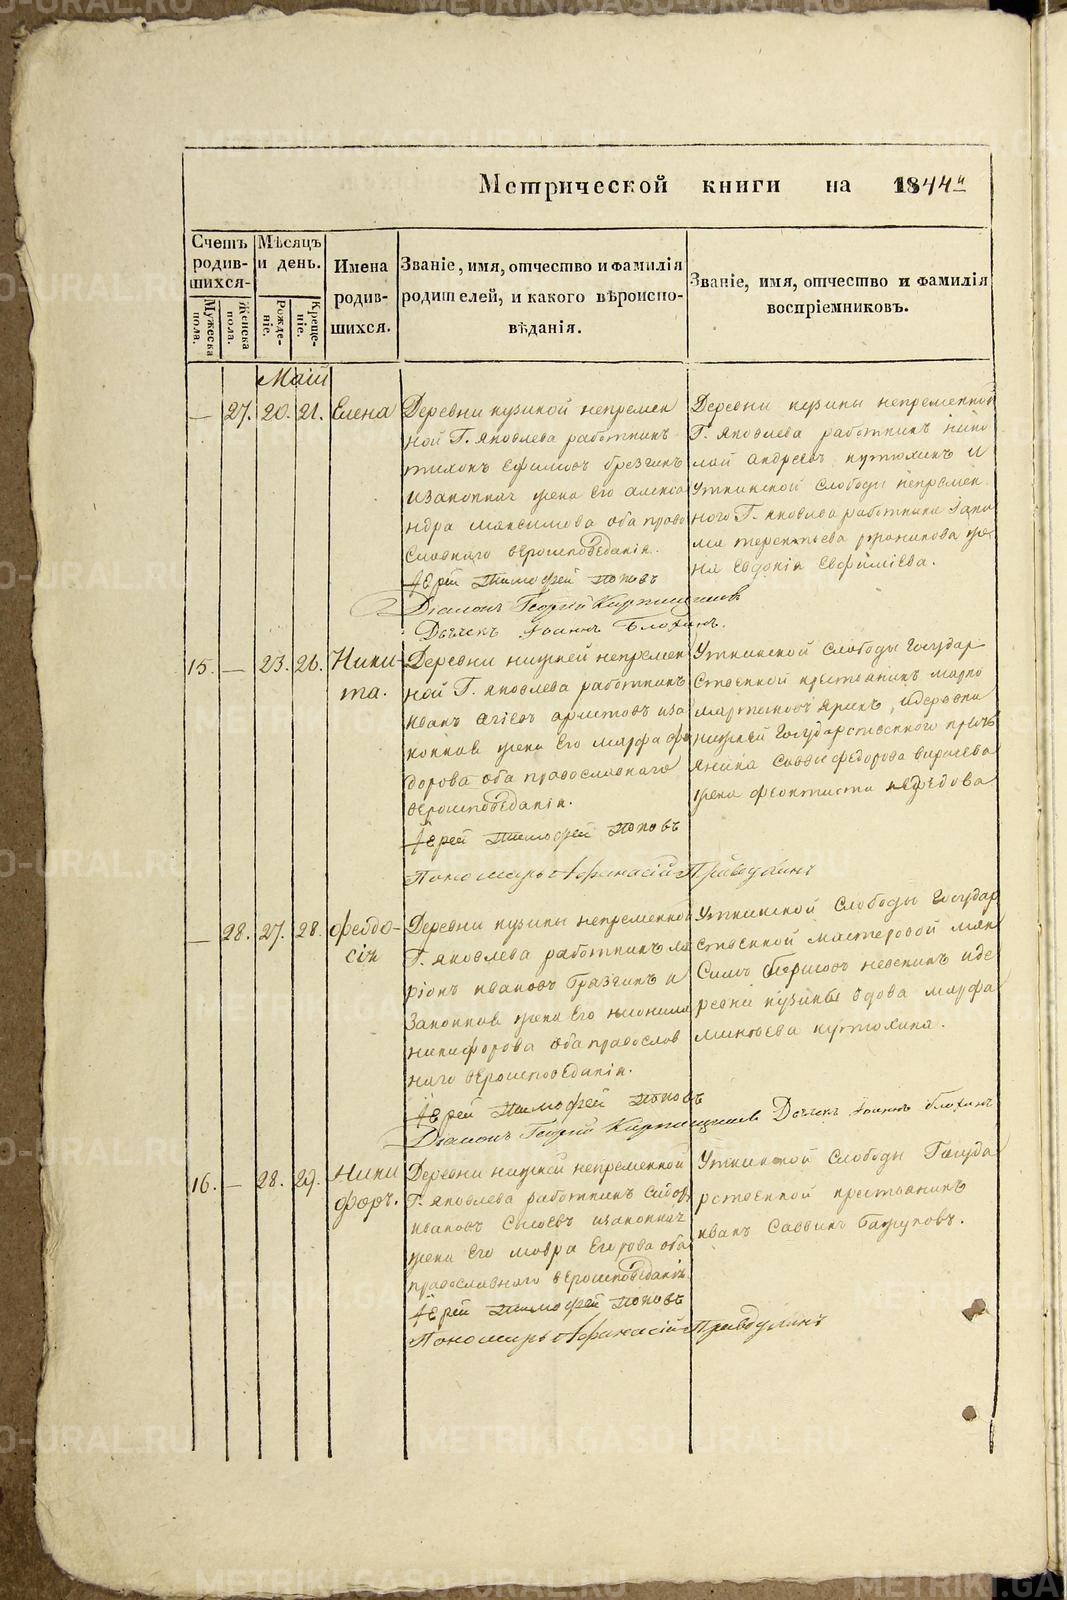 Метрической книги на 1844й
Счетъ родив-шихся.
Мужеска пола.
Женска пола.
Мѣсяцъ и день.
Рожде-ніе.
Креще-ніе.
Имена родив-шихся.
Званіе, имя, отчество и фамилія
родителей, и какого вѣроиспо-
вѣданія.
Званіе, имя, отчество и фамилія
воспріемниковъ.
Маій
— 27. 20. 21. Елена
Деревни кузиной непремен
ной Г. Яковлева работникъ
тихонъ Ефимовъ
изаконная жена его алекса
ндра максимова оба право
славнаго вероисповеданія.
Іерей Тимофей Поповъ
Діаконъ Георгій
Дьячекъ Іоаннъ Блохинъ.
Деревни кузины непременной
Г. Яковлева работникъ нико
лай андреевъ кутюхинъ и
Уткинской слободы непремен
ного Г. Яковлева работника
терентьева же
на Евдокія Ефиміева.
15. — 23. 26. Ники-
та.
Деревни нижней непремен
ной Г. Яковлева работникъ
иванъ аристовъ иза
конная жена его марфа фе
дорова оба православнаго
вероисповеданія.
Іерей Тимофей Поповъ
Пономарь Афанасій
Уткинской слободы Государ
ственной крестьянинъ марко
мартиновъ идеревни
нижней Государственного крестъ
янина саввы федорова
жена феоктиста нефедова
— 28. 27. 28. Феодо-
сія
Деревни кузины непременной
Г. Яковлева работникъ ла
ріонъ ивановъ и
законная жена его
никифорова оба православ
наго вероисповеданія.
Іерей Тимофей Поповъ
Діаконъ Георгій Дьячекъ Іоаннъ Блохинъ
Уткинской слободы Государ
ственной мастеровой мак
симъ борисовъ иде
ревни кузины вдова марфа
кутюхина.
16. — 28. 29. Ники
форъ.
Деревни нижней непременной
Г. Яковлева работникъ сидоръ
ивановъ изаконная
жена его мавра Егорова оба
православнаго вероисповеданія.
Іерей Тимофей Поповъ
Пономарь Афанасій
Уткинской слободы Госуда
рственной крестьянинъ
иванъ саввинъ